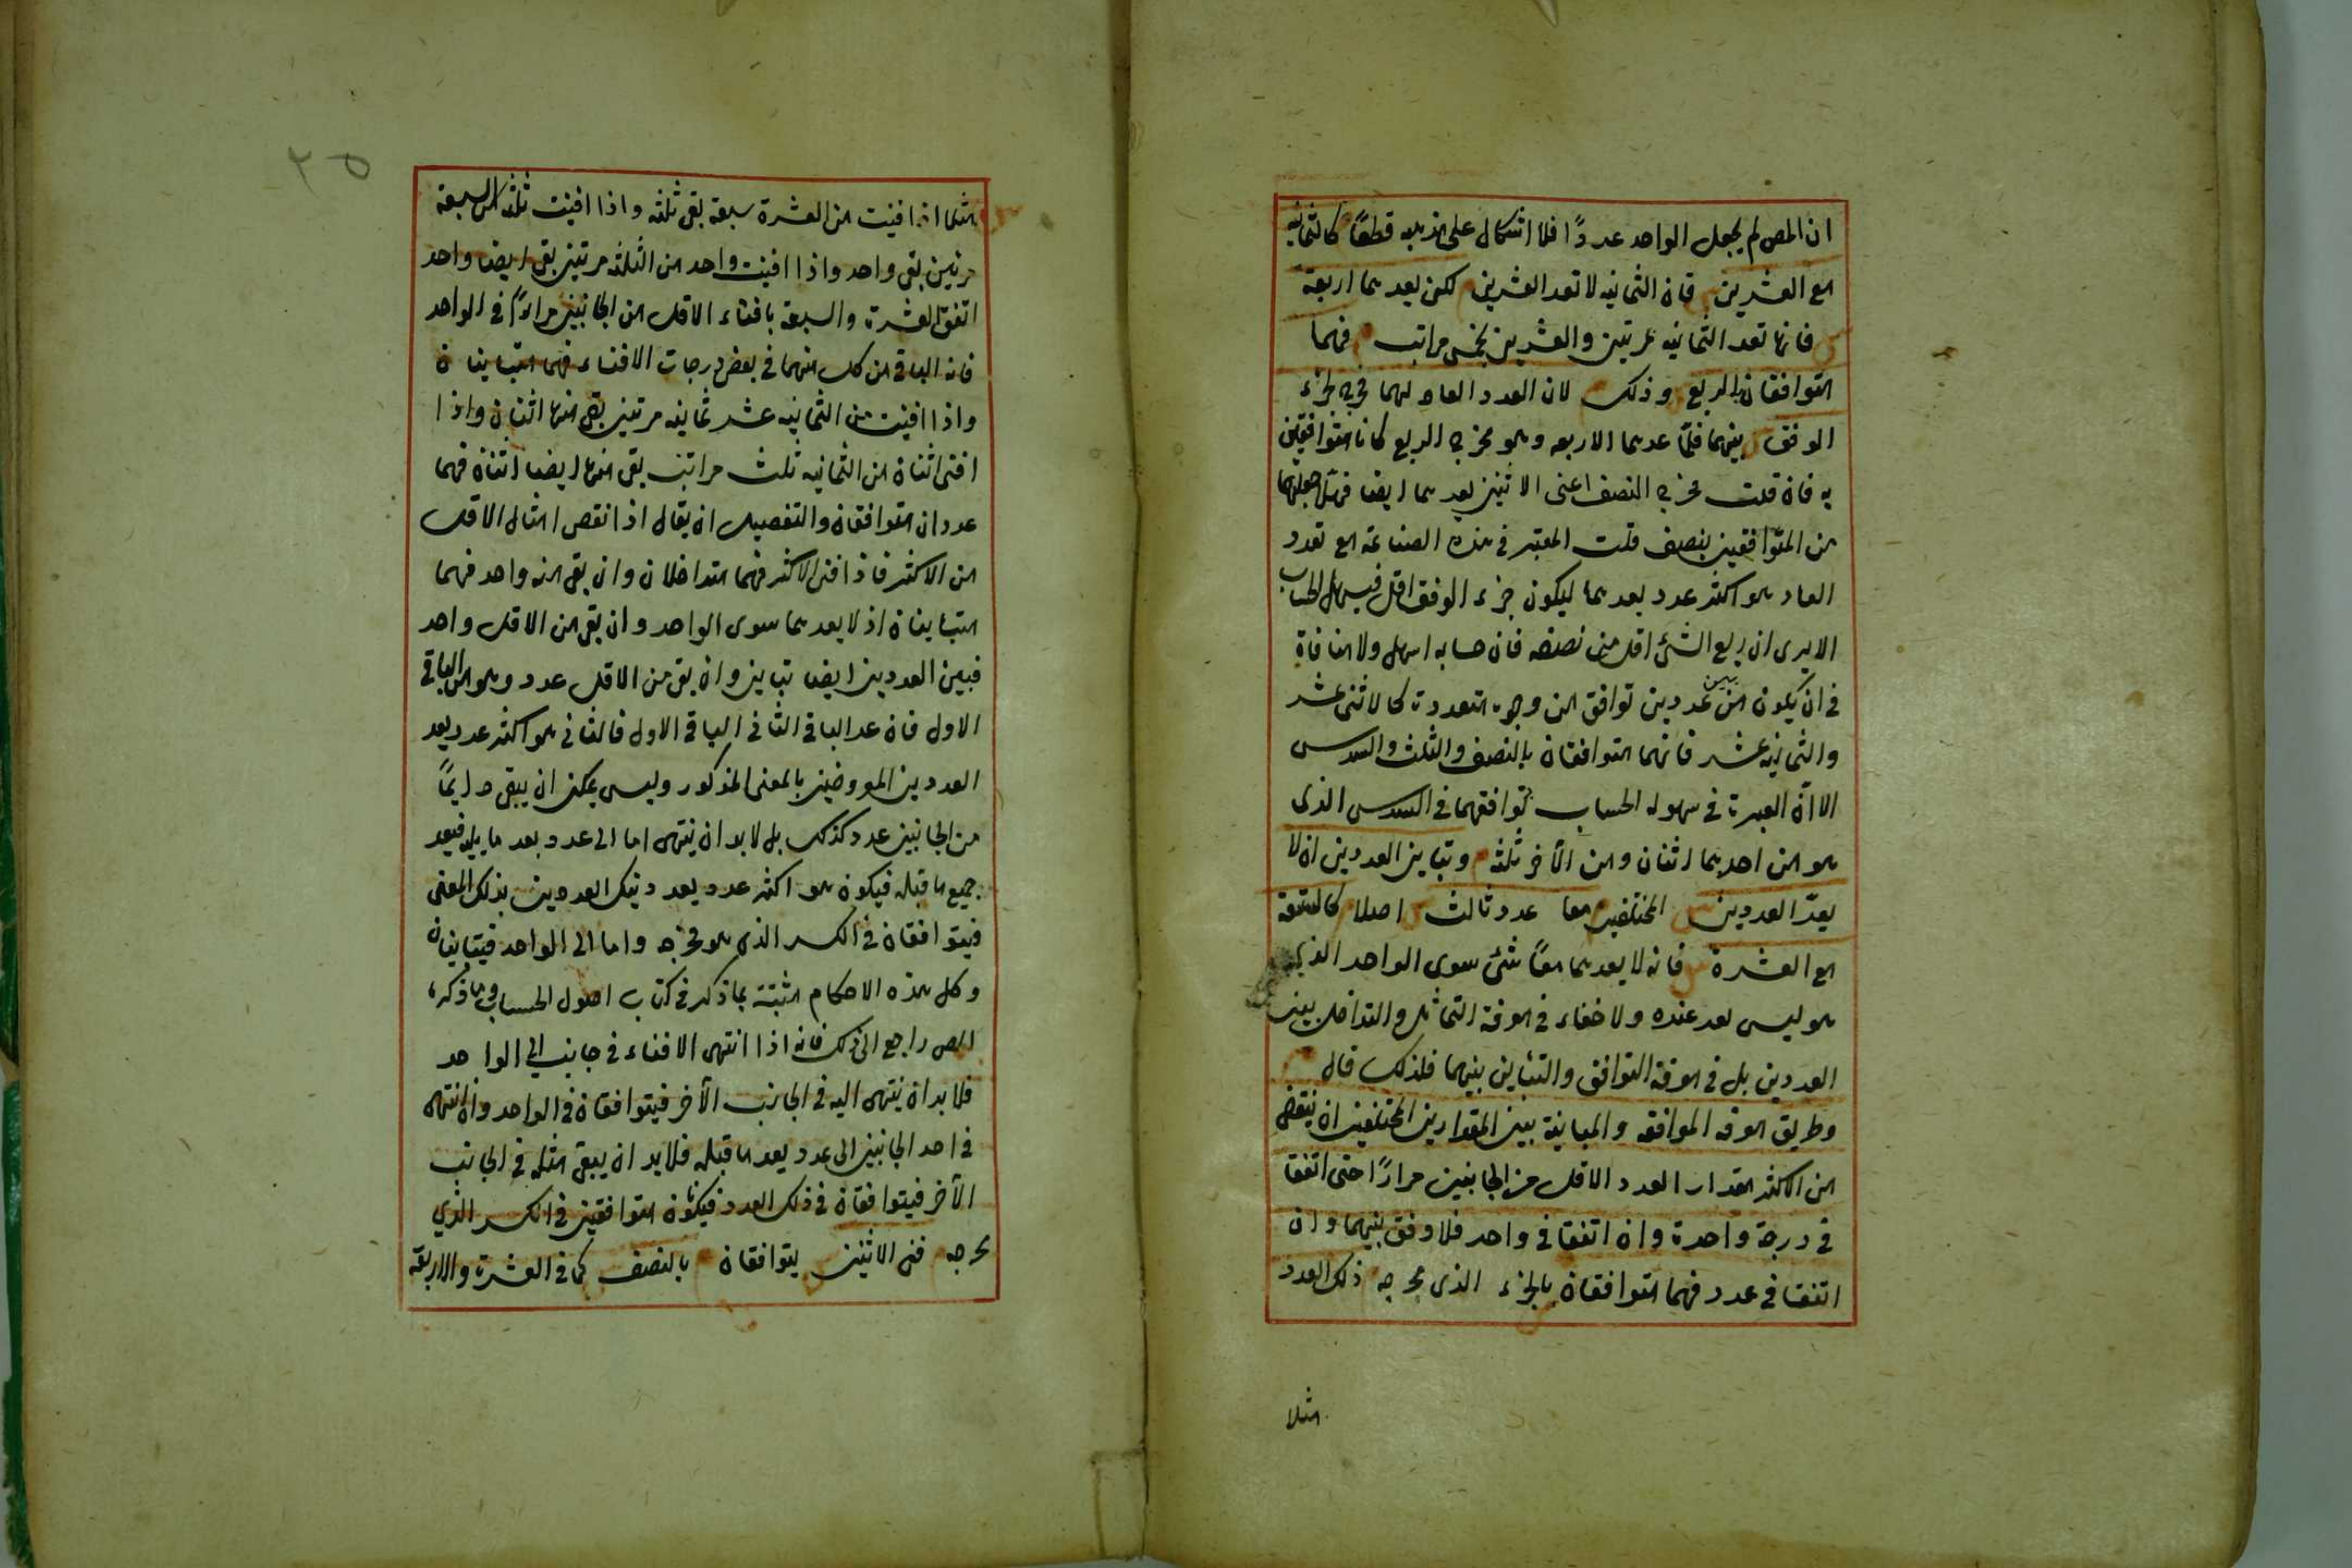 ان المص لم يجعل الواحد عددًا فلا اشكال على مذهبه قطعًا كالثمانيه
مع العشرين فان الثمانيه لا تعد العشرين لكن يعدهما اربعة
فانها تعد الثمانيه مرتين والعشرين بخمس مراتب فهما
متوافقان بالربع وذلك لان العدد العاد لهما مخرج لجزء
الوفق بينهما فلمّا عدهما الاربعه وهو مخرج الربع كانا متوافقين
به فان قلت مخرج النصف اعنى الاثنين يعدهما ايضا فهلا جعلتهما
من المتوافقين بنصف قلت المعتبر في هذه الصناعة مع تعدد
العاد هو اكثر عدد يعدهما ليكون جزء الوفق اقل فيسهل الحساب
الا يرى ان ربع الشئ اقل من نصفه فان حسابه اسهل ولا منافاة
في ان يكون بين عددين توافق من وجوه متعددة كالاثنى عشر
والثمانيه عشر فانهما متوافقان بالنصف والثلث والسدس
الا انّ العبرة في سهوله الحساب توافقهما في السدس الذى
هو من احدهما اثنان ومن الآخر ثلثه وتباين العددين ان لا
يعدّ العددين المختلفين معا عدد ثالث اصلا كالتسعة
مع العشرة فانه لا يعدهما معًا شئ سوى الواحد الذى
هو ليس بعدد عنده ولا خفاء في معرفة التماثل والتداخل بين
العددين بل في معرفة التوافق والتباين بينهما فلذلك قال
وطريق معرفه الموافقه والمباينة بين المقدارين المختلفين ان ينقص
من الاكثر بمقدار العدد الاقل من الجانبين مرارًا حتى اتفقا
في درجة واحدة وان اتفقا في واحد فلا وفق بينهما وان
اتفقا في عدد فهما متوافقان بالجزء الذى مخرجه ذلك العدد
مثلا
٢٥
مثلا اذا افنيت من العشرة سبعة بقى ثلثه واذا افنيت ثلثه من السبعة
مرتين بقى واحد واذا افنيت واحد من الثلثه مرتين بقى ايضا واحد
اتفق العشرة والسبعة بافناء الاقل من الجانبين مرارًا في الواحد
فانه الباقى من كل منهما في بعض درجات الافناء فهما متباينان
واذا افنيت من الثمانيه عشر ثمانيه مرتين بقى منها اثنان واذا
افنى اثنان من الثمانيه ثلث مراتب بقى منها ايضا اثنان فهما
عددان متوافقان والتفصيل ان يقال اذا نقص امثال الاقل
من الاكثر فاذا افنى الاكثر فهما متداخلان وان بقى منه واحد فهما
متباينان اذ لا يعدهما سوى الواحد وان بقى من الاقل واحد
فبين العددين ايضا تباين وان بقى من الاقل عدد وهو من الباقى
الاول فان عد الباقى الثانى الباقى الاول فالثانى هو اكثر عدد يعد
العددين المفروضين بالمعنى المذكور وليس يمكن ان يبقى دايمًا
من الجانبين عدد كذلك بل لابد ان ينتهى اما الى عدد يعد ما يليه فيعد
جميع ما قبله فيكون هو اكثر عدد يعد دينك العددين بذلك المعنى
فيتوافقان في الكسر الذى هو مخرجه واما الى الواحد فيتباينان
وكل هذه الاحكام مثبتة بما ذكر في كتاب اصول الحساب وما ذكره
المص راجع الى ذلك فانه اذا انتهى الافناء في جانب الى الواحد
فلا بد ان ينتهى اليه في الجانب الآخر فيتوافقان في الواحد وان انتهى
في احد الجانبين الى عدد يعد ما قبله فلابد ان يبقى مثله في الجانب
الآخر فيتوافقان في ذلك العدد فيكونان متوافقين في الكسر الذي
مخرجه ففى الاثنين يتوافقان بالنصف كما في العشرة والاربعة